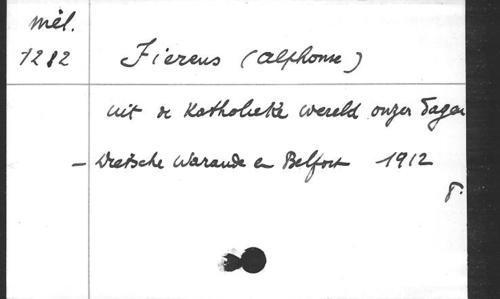 mél.
1282
Fierens (Alphonse)
uit de Katholieke wereld onzer dagen
- Dietsche Warande en Belfort 1912
8.